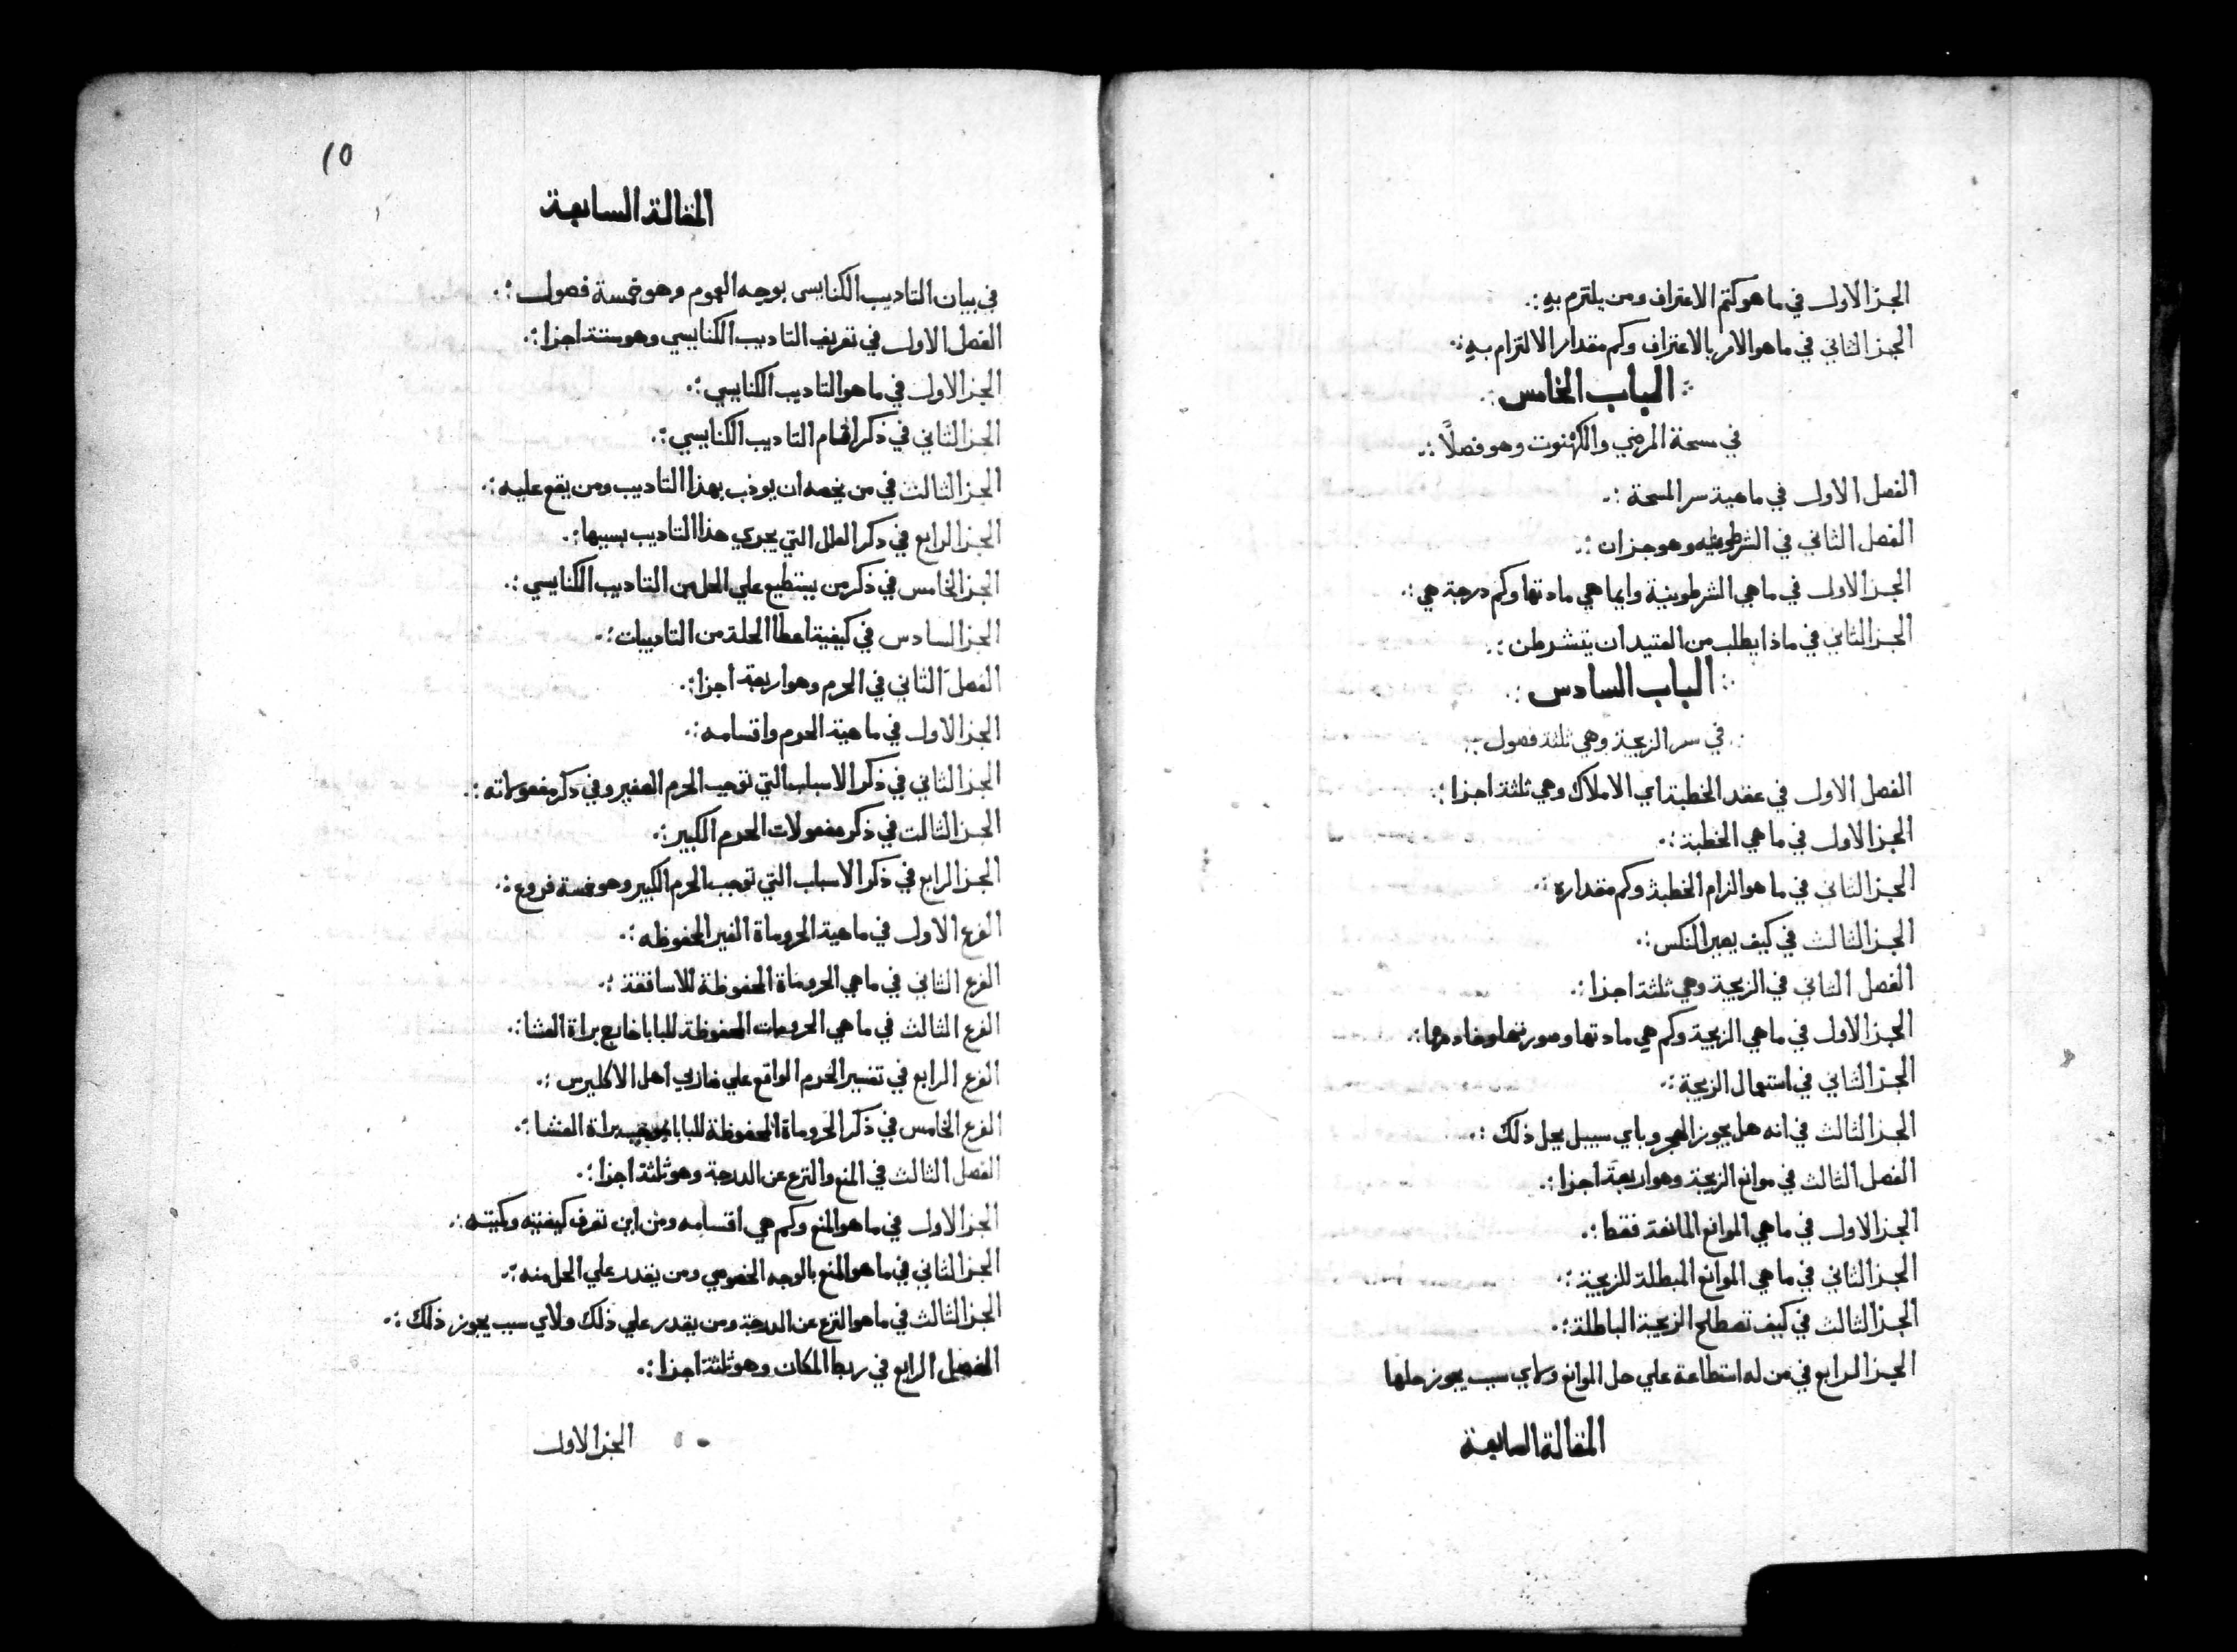 الجز الاول في ما هو كتم الاعتراف ومن يلتزم به :.
الجز الثاني في ما هو الامر بالاعتراف وكم مقدار الالتزام به :.
:. الباب الخامس :.
في مسحة المرضي والكهنوت وهو فصلاً :.
الفصل الاول في ماهية سر المسحة :.
الفصل الثاني في الشرطونيه وهو جزان :.
الجز الاول في ما هي الشرطونية وايما هي مادتها وكم درجة هي :.
الجز الثاني في ماذا يطلب من العتيد ان يتشرطن :.
:. الباب السادس :.
:. في سر الزيجة وهي ثلثة فصول :.
الفصل الاول في عقد الخطبة اي الاملاك وهي ثلثة اجزا :.
الجز الاول في ما هي الخطبة :.
الجز الثاني في ما هو الزام الخطبة وكم مقداره :.
الجز الثالث في كيف يصير النكس :.
الفصل الثاني في الزيجة وهي ثلثة اجزا :.
الجز الاول في ما هي الزيجة وكم هي مادتها وصورتها وخادمها :.
الجز الثاني في استعمال الزيجة :.
الجز الثالث في انه هل يجوز الهجر وباي سبيل يحل ذلك :.
الفصل الثالث في موانع الزيجة وهو اربعة اجزا :.
الجز الاول في ما هي الموانع المانعة فقط :.
الجز الثاني في ما هي الموانع المبطلة للزيجة :.
الجز الثالث في كيف تصطلح الزيجة الباطلة :.
الجز الرابع في من له استطاعة علي حل الموانع ولاي سبب يجوز حلها
المقالة السابعة
10
المقالة السابعة
في بيان التاديب الكنايسي بوجه العموم وهو خمسة فصول :.
الفصل الاول في تعريف التاديب الكنايسي وهو ستة اجزا :.
الجز الاول في ما هو التاديب الكنايسي :.
الجز الثاني في ذكر اقسام التاديب الكنايسي :.
الجز الثالث في من يخصه ان يوذب بهذا التاديب ومن يقع عليه :.
الجز الرابع في ذكر العلل التي يجري هذا التاديب بسببها :.
الجز الخامس في ذكر من يستطيع علي الحل من التاديب الكنايسي :.
الجز السادس في كيفية اعطا الحلة من التاديبات :.
الفصل الثاني في الحرم وهو اربعة اجزا :.
الجز الاول في ماهية الحرم واقسامه :.
الجز الثاني في ذكر الاسباب التي توجب الحرم الصغير وفي ذكر مفعولاته :.
الجز الثالث في ذكر مفعولات الحرم الكبير :.
الجز الرابع في ذكر الاسباب التي توجب الحرم الكبير وهو خمسة فروع :.
الفرع الاول في ماهية الحروماة الغير المحفوظه :.
الفرع الثاني في ما هي الحروماة المحفوظة للاساقفة :.
الفرع الثالث في ما هي الحرومات المحفوظة للبابا خارج براة العشا :.
الفرع الرابع في تفسير الحرم الواقع علي ضاربي اهل الاكليرس :.
الفرع الخامس في ذكر الحروماة المحفوظة للبابا بموجب براة العشا :.
الفصل الثالث في المنع والنزع عن الدرجة وهو ثلثة اجزا :.
الجز الاول في ما هو المنع وكم هي اقسامه ومن اين تعرف كيفيته وكميته :.
الجز الثاني في ما هو المنع بالوجه الخصوصي ومن يقدر علي الحل منه :.
الجز الثالث في ما هو النزع عن الدرجة ومن يقدر علي ذلك ولاي سبب يجوز ذلك :.
الفصل الرابع في ربط المكان وهو ثلثة اجزا :.
الجز الاول